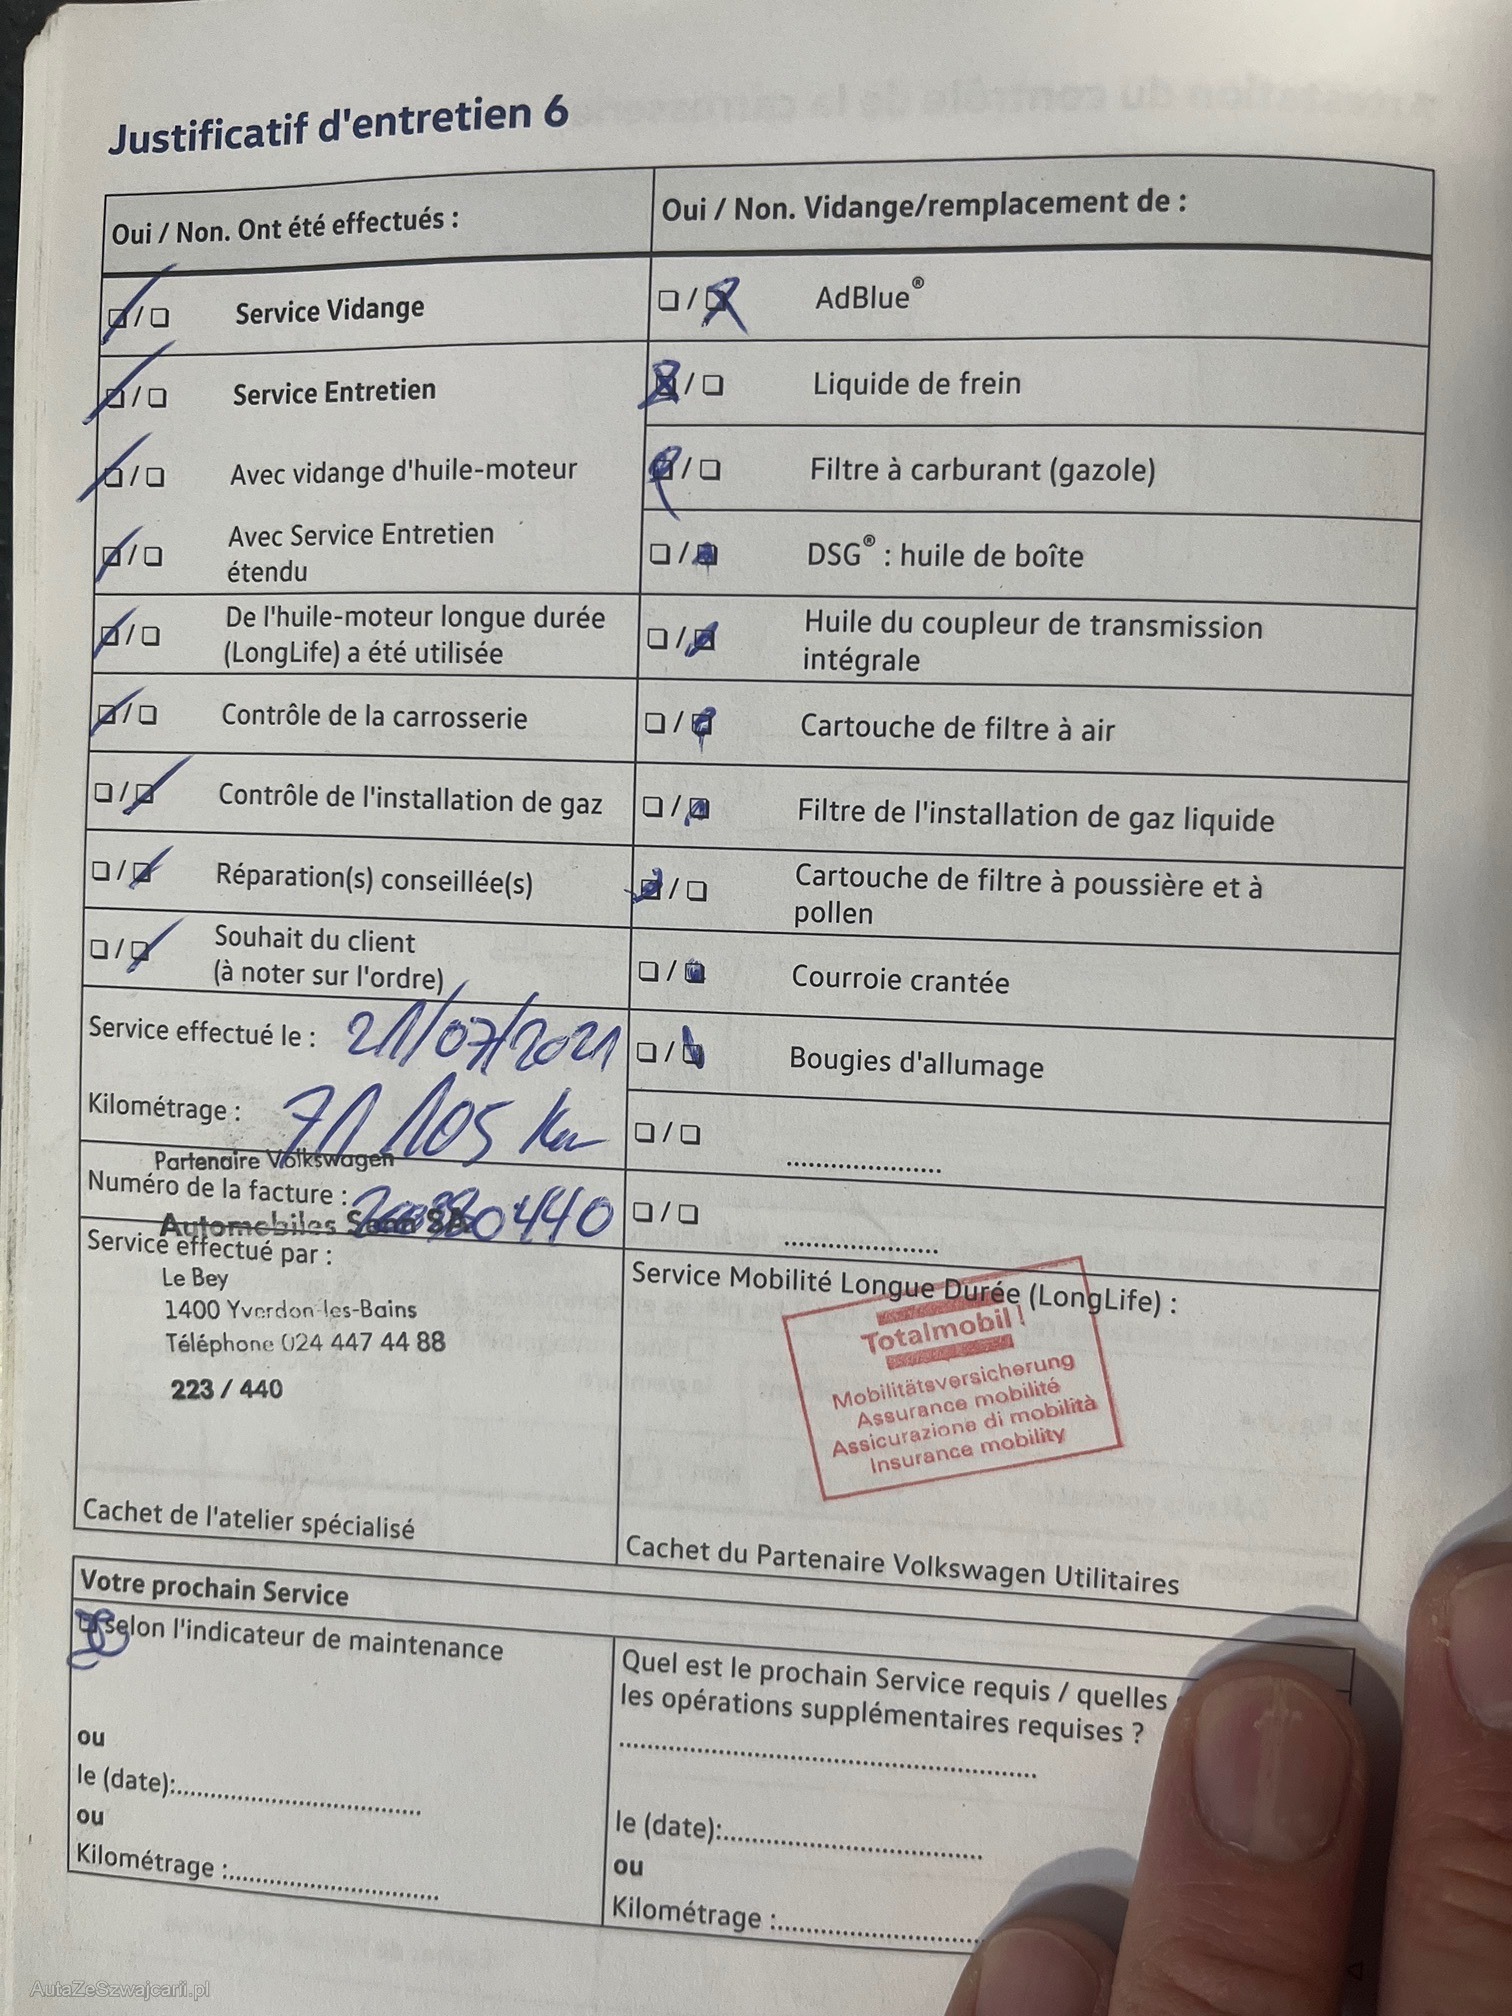 Justificatif d'entretien 6
Oui / Non. Ont été effectués :
Oui / Non. Vidange/remplacement de :
❏/❏ Service Vidange
❏/❏ AdBlue®
❏/❏ Service Entretien
❏/❏ Liquide de frein
❏/❏ Avec vidange d'huile-moteur
❏/❏ Filtre à carburant (gazole)
❏/❏ Avec Service Entretien
étendu
❏/❏ DSG® : huile de boîte
❏/❏ De l'huile-moteur longue durée
(LongLife) a été utilisée
❏/❏ Huile du coupleur de transmission
intégrale
❏/❏ Contrôle de la carrosserie
❏/❏ Cartouche de filtre à air
❏/❏ Contrôle de l'installation de gaz
❏/❏ Filtre de l'installation de gaz liquide
❏/❏ Réparation(s) conseillée(s)
❏/❏ Cartouche de filtre à poussière et à
pollen
❏/❏ Souhait du client
(à noter sur l'ordre)
❏/❏ Courroie crantée
Service effectué le : 21/07/2021
❏/❏ Bougies d'allumage
Kilométrage : 71 105 Km
❏/❏ .....................
Partenaire Volkswagen
Numéro de la facture :
❏/❏ .....................
Automobiles SA
Service effectué par :
Le Bey
1400 Yverdon-les-Bains
Téléphone 024 447 44 88
223 / 440
Cachet de l'atelier spécialisé
Service Mobilité Longue Durée (LongLife) :
Totalmobil!
Mobilitätsversicherung
Assurance mobilité
Assicurazione di mobilità
Insurance mobility
Cachet du Partenaire Volkswagen Utilitaires
Votre prochain Service
❏ selon l'indicateur de maintenance
ou
le (date):..............................
ou
Kilométrage :..............................
Quel est le prochain Service requis / quelles
les opérations supplémentaires requises ?
..................................................
le (date):..............................
ou
Kilométrage :..............................
AutaZeSzwajcarii.pl